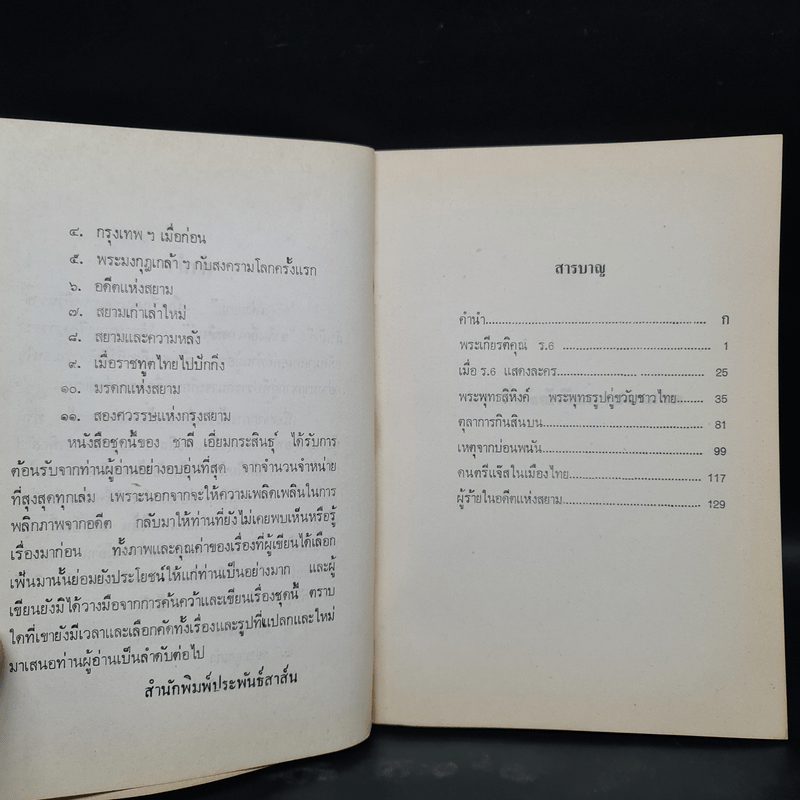 ๔. กรุงเทพ ฯ เมื่อก่อน
๕. พระมงกุฎเกล้า ฯ กับสงครามโลกครั้งแรก
๖. อดีตแห่งสยาม
๗. สยามเก่าเล่าใหม่
๘. สยามและความหลัง
๙. เมื่อราชทูตไทยไปปักกิ่ง
๑๐. มรดกแห่งสยาม
๑๑. สองศวรรษแห่งกรุงสยาม
หนังสือชุดนี้ของ ชาลี เอี่ยมกระสินธุ์ ได้รับการ
ต้อนรับจากท่านผู้อ่านอย่างอบอุ่นที่สุด จากจำนวนจำหน่าย
ที่สูงสุดทุกเล่ม เพราะนอกจากจะให้ความเพลิดเพลินในการ
พลิกภาพจากอดีต กลับมาให้ท่านที่ยังไม่เคยพบเห็นหรือรู้
เรื่องมาก่อน ทั้งภาพและคุณค่าของเรื่องที่ผู้เขียนได้เลือก
เฟ้นมานั้นย่อมยังประโยชน์ให้แก่ท่านเป็นอย่างมาก และผู้
เขียนยังมิได้วางมือจากการค้นคว้าและเขียนเรื่องชุดนี้ ตราบ
ใดที่เขายังมีเวลาและเลือกคัดทั้งเรื่องและรูปที่แปลกและใหม่
มาเสนอท่านผู้อ่านเป็นลำดับต่อไป
สำนักพิมพ์ประพันธ์สาส์น
สารบาญ
คำนำ........ ก
พระเกียรติคุณ ร.6 ........ 1
เมื่อ ร.6 แสดงละคร........ 25
พระพุทธสิหิงค์ พระพุทธรูปคู่ขวัญชาวไทย........ 35
ตุลาการกินสินบน........ 81
เหตุจากบ่อนพนัน........ 99
ดนตรีแจ๊สในเมืองไทย........ 117
ผู้ร้ายในอดีตแห่งสยาม........ 129